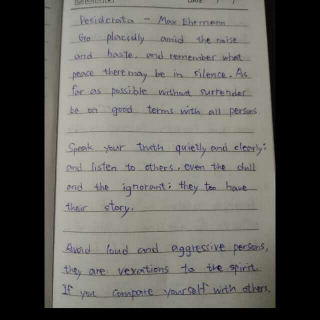 DATE / /
Desiderata - Max Ehrmann
Go placedly amid the noise
and haste, and remember what
peace there may be in silence. As
far as possible without surrender
be on good terms with all persons
Speak your truth quietly and clearly;
and listen to others, even the dull
and the ignorant; they too have
their story.
Avoid loud and aggressive persons,
they are vexations to the spirit.
If you compare yourself with others,